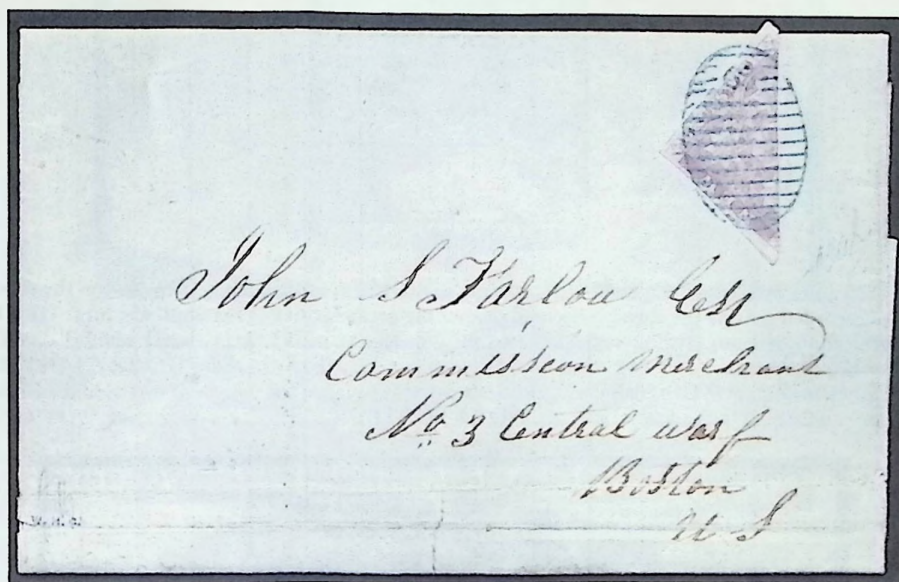 John S Farlow Esq
Commission Merchant
No 3 Central warf
Boston
U S